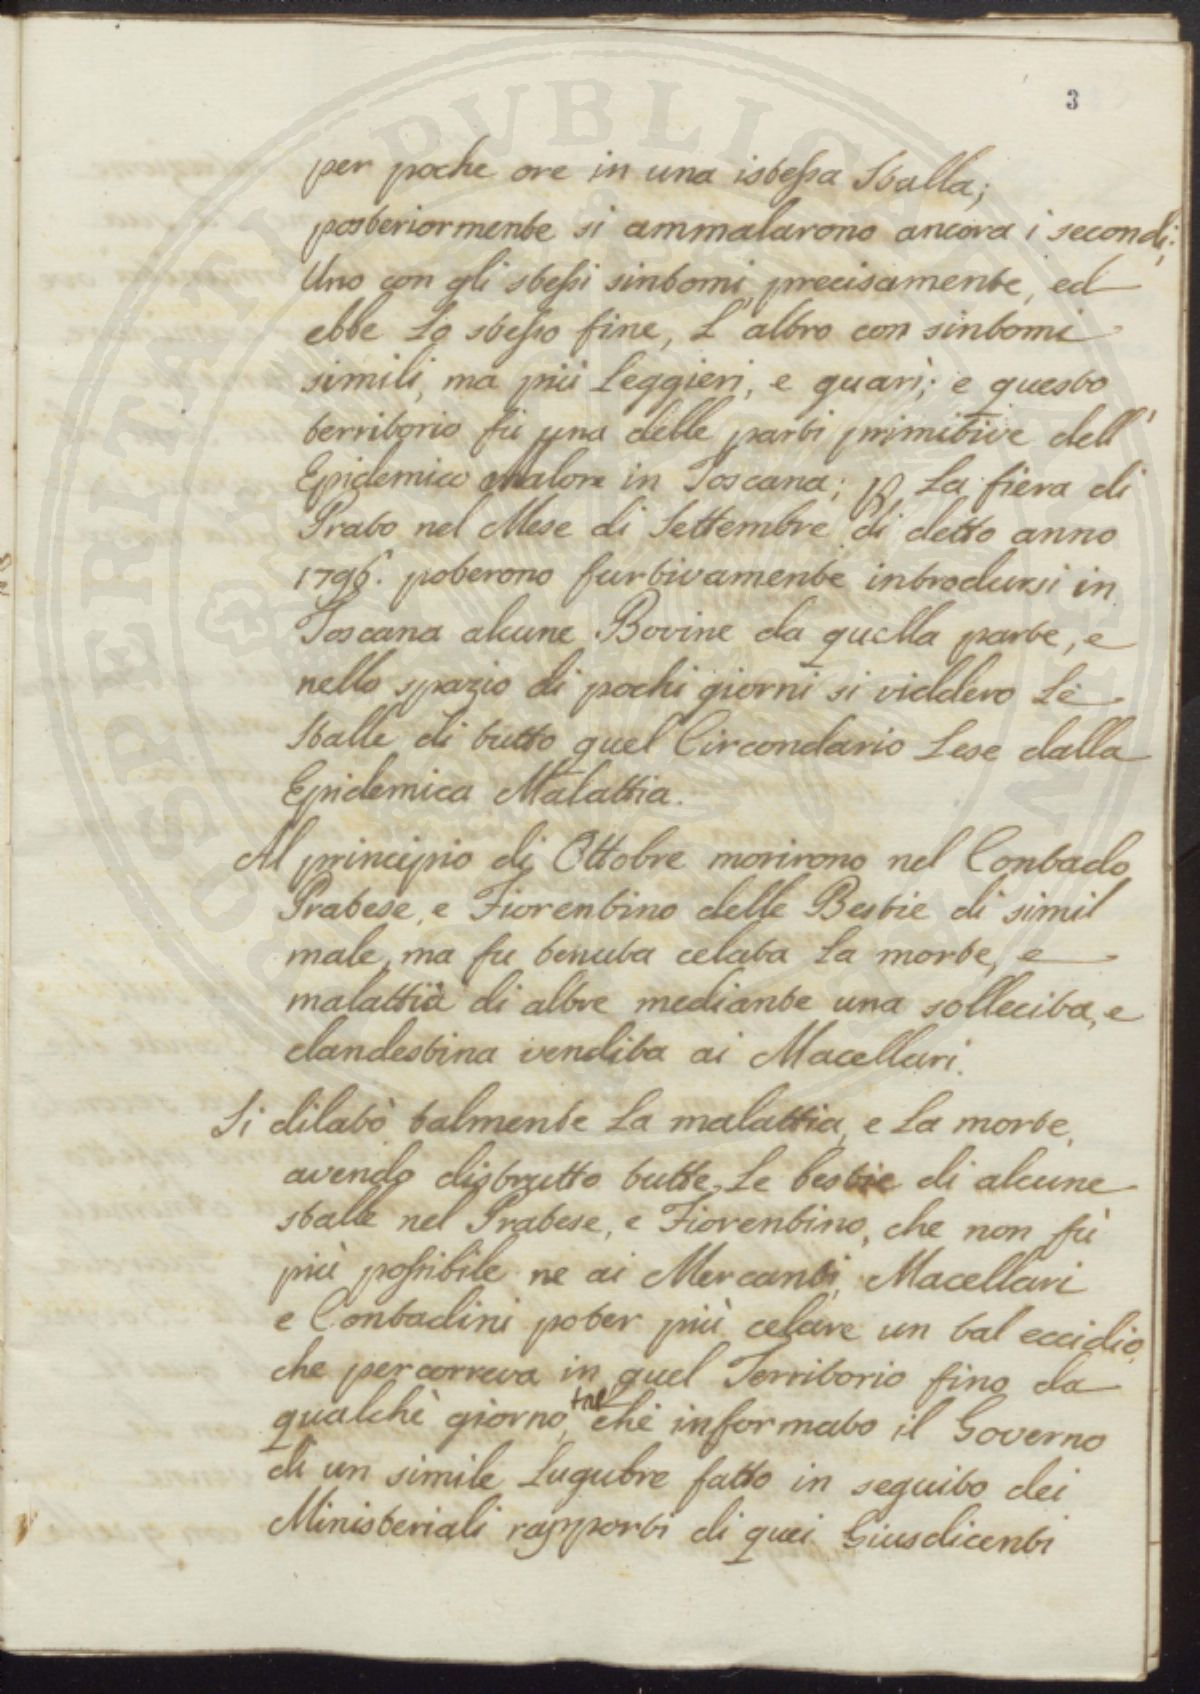 3
per poche ore in una istessa Stalla;
posteriormente si ammalarono ancora i secondi;
Uno con gli stessi sintomi precisamente, ed
ebbe Lo stesso fine, L'altro con sintomi
simili, ma più Leggieri, e guarì; e questo
territorio fù una delle parti primitive dell'
Epidemico Malore in Toscana; p La fiera di
Prato nel Mese di Settembre di detto anno
1796. poterono furtivamente introdursi in
Toscana alcune Bovine da quella parte, e
nello spazio di pochi giorni si viddero Le
Stalle di tutto quel Circondario Lese dalla
Epidemica Malattia.
Al principio di Ottobre morirono nel Contado
Pratese, e Fiorentino delle Bestie di simil
male, ma fu tenuta celata La morte, e
malattia di altre mediante una sollecita, e
clandestina vendita ai Macellari.
Si dilatò talmente La malattia, e La morte,
avendo distrutto tutte Le bestie di alcune
stalle nel Pratese, e Fiorentino, che non fù
più possibile ne ai Mercanti, Macellari
e Contadini poter più celare un tal eccidio,
che percorreva in quel Territorio fino da
qualchè giorno, tal che informato il Governo
di un simile Lugubre fatto in seguito dei
Ministeriali rapporti di quei Giusdicenti
PROSPERITATI PUBLICAE AUGENDAE